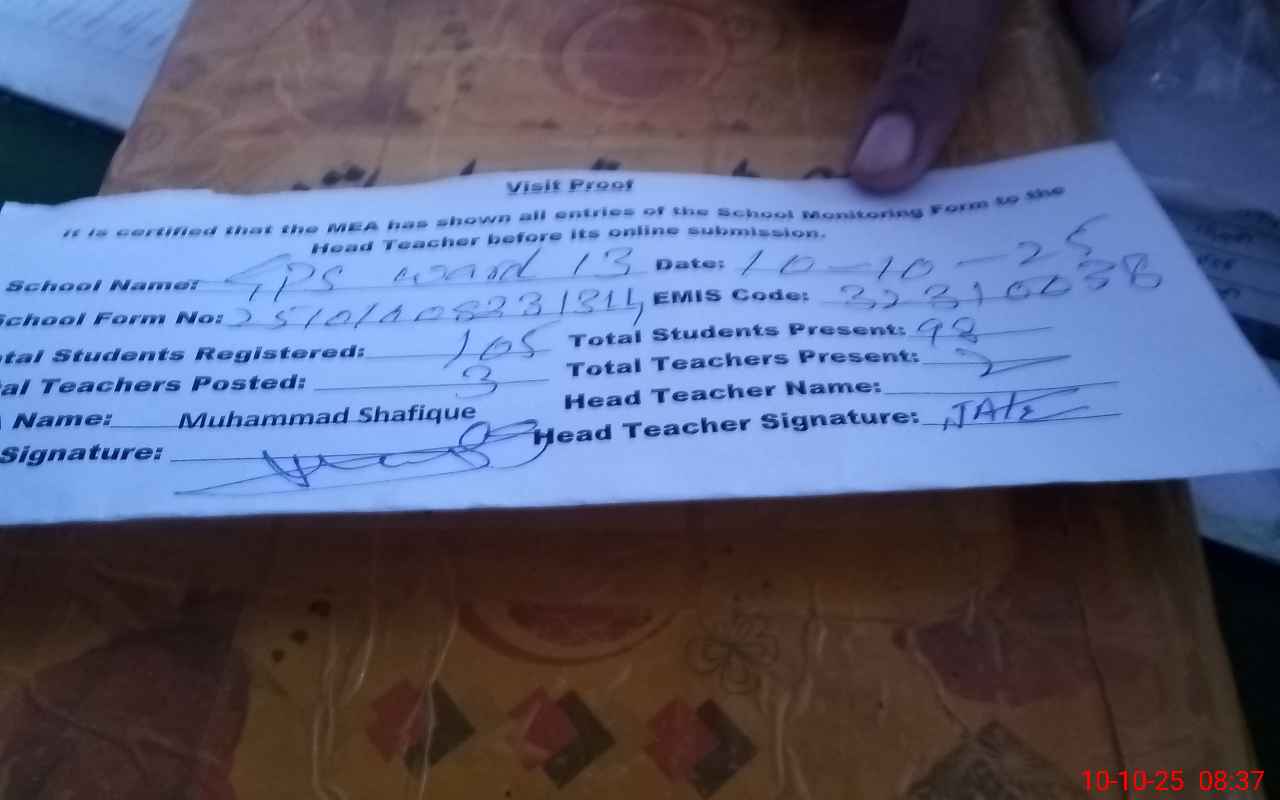 Visit Proof
It is certified that the MEA has shown all entries of the School Monitoring Form to the
Head Teacher before its online submission.
School Name: GPS ward 13 Date: 10-10-25
School Form No: EMIS Code: 32310038
tal Students Registered: 105 Total Students Present: 98
al Teachers Posted: 3 Total Teachers Present: 2
Name: Muhammad Shafique Head Teacher Name:
Signature: Head Teacher Signature:
10-10-25 08:37